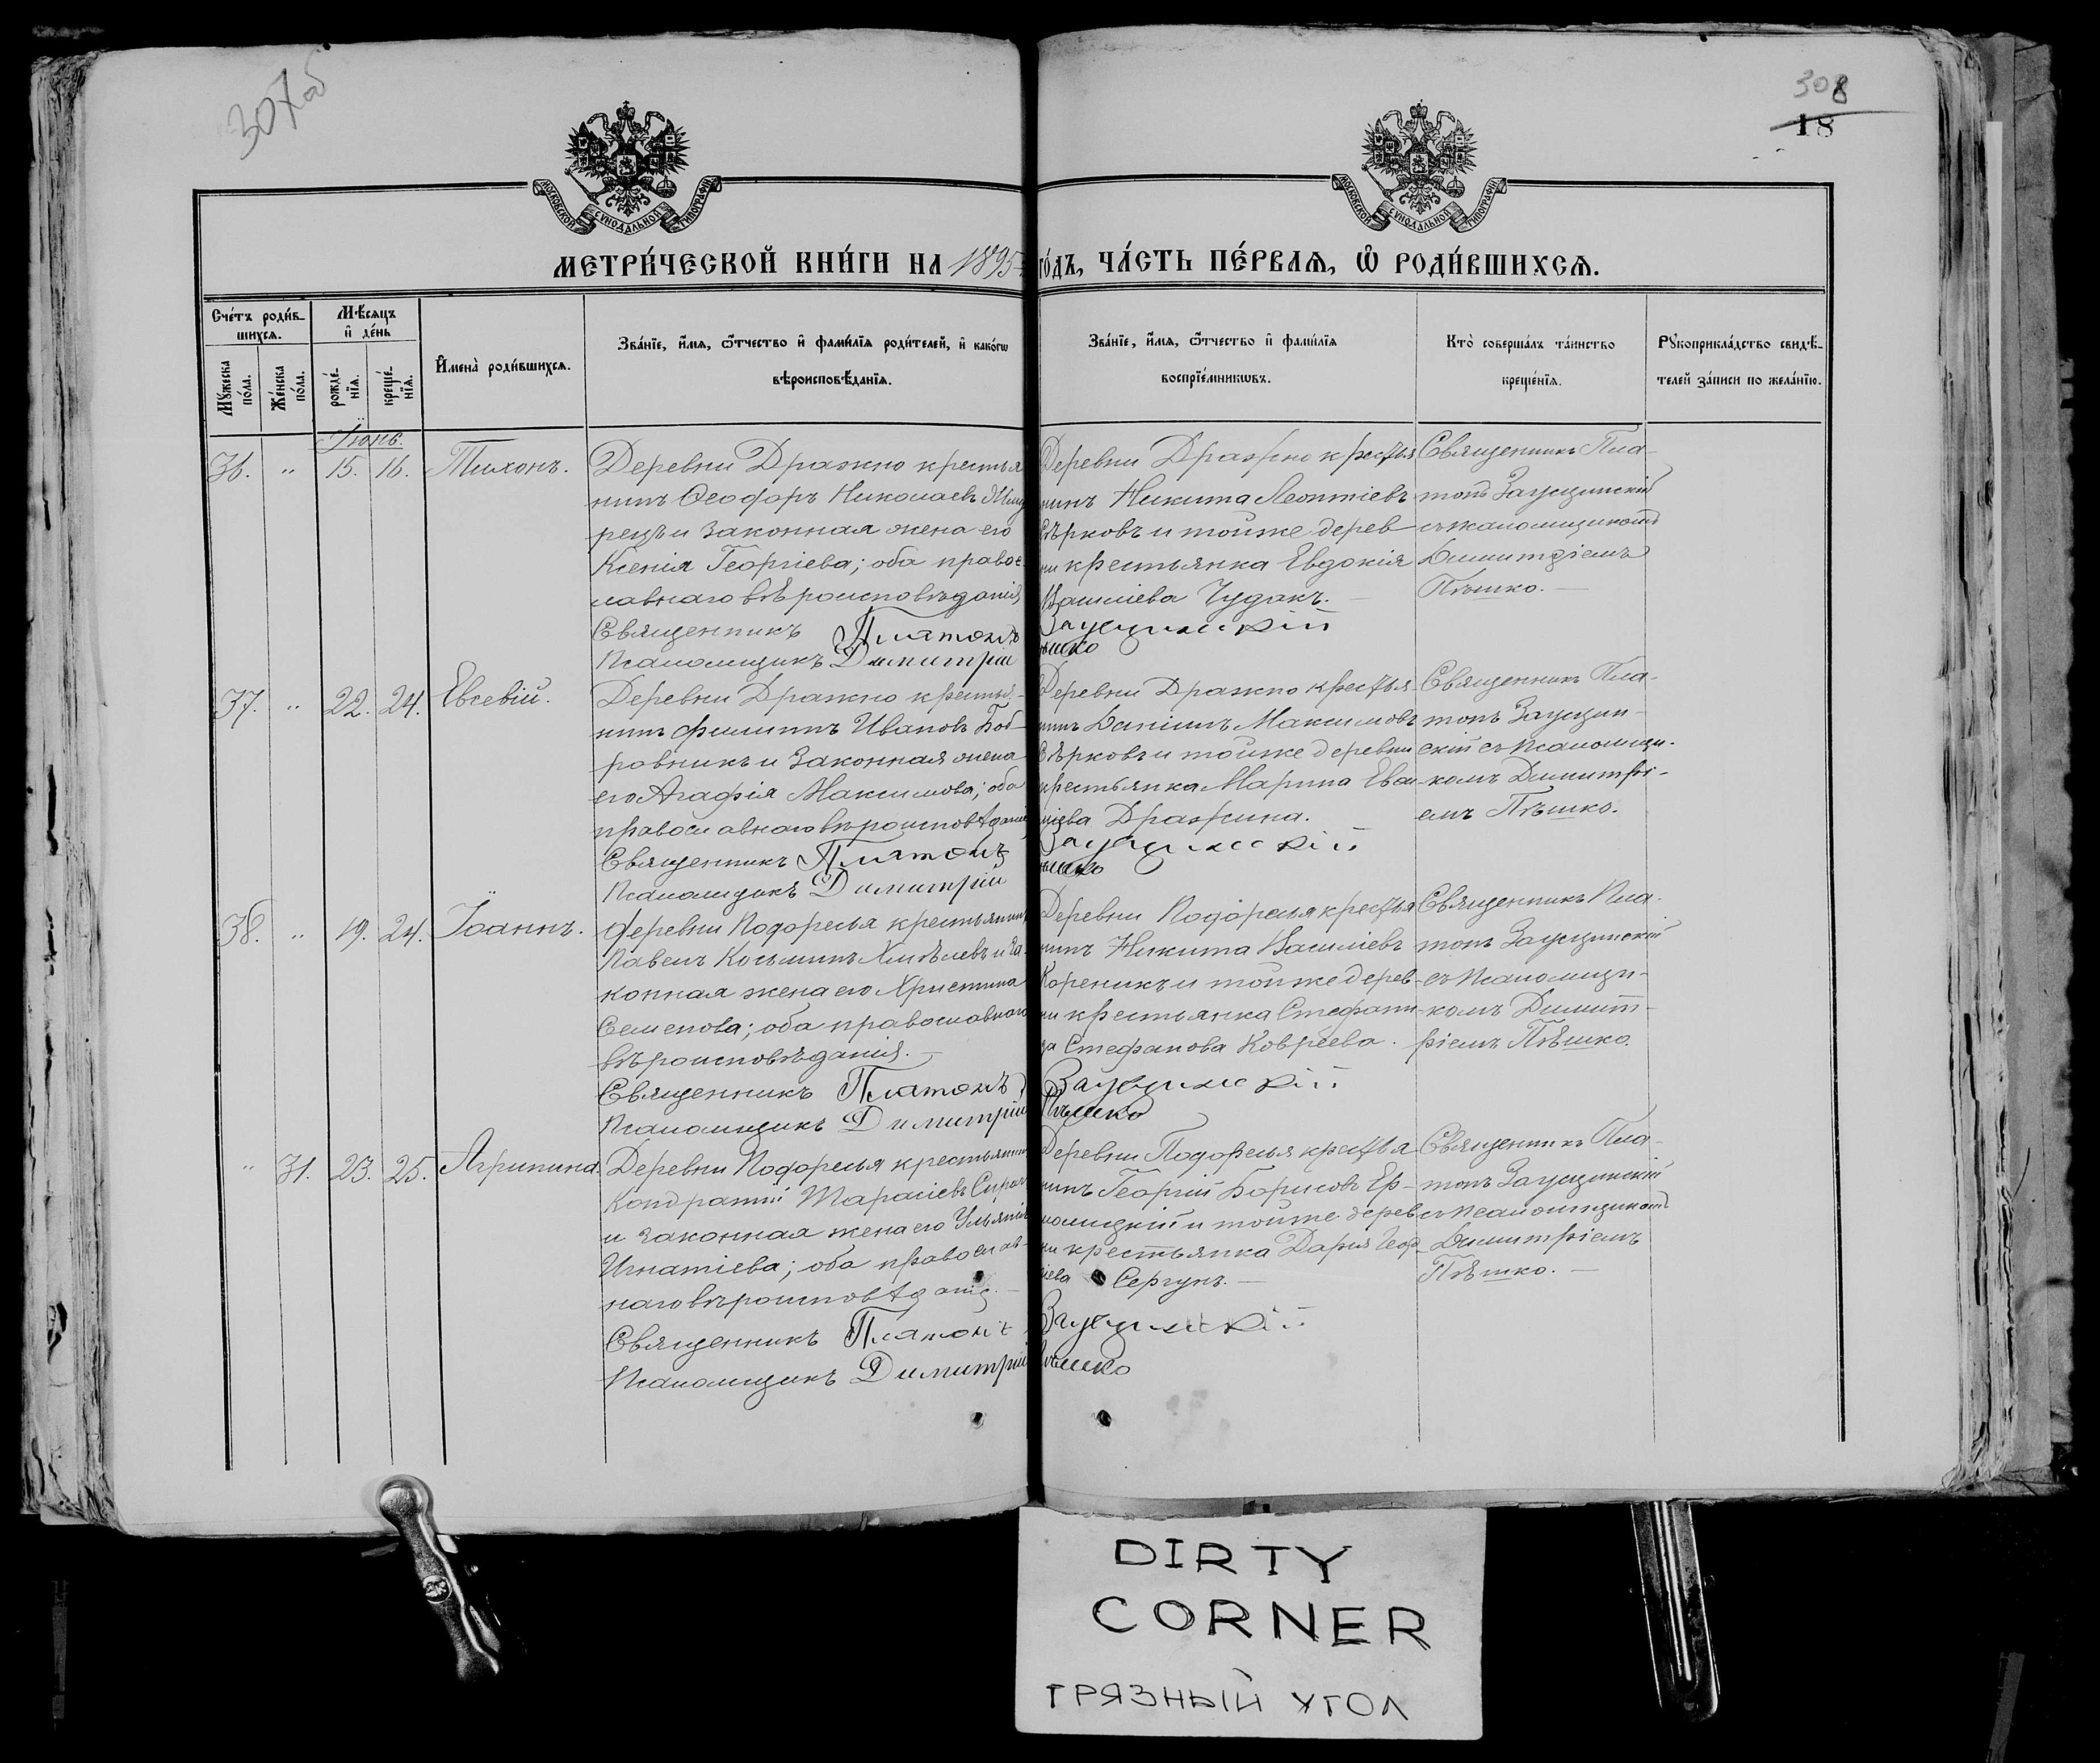 307об
308
18
МОСКОВСКОЙ СУНОДАЛЬНОЙ ТИПОГРАФІИ
МОСКОВСКОЙ СУНОДАЛЬНОЙ ТИПОГРАФІИ
МЕТРИ́ЧЕСКОЙ КНИ́ГИ НА 1895 ГО́ДЪ, ЧА́СТЬ ПЕ́РВАѦ, Ѡ҆ РОДИ́ВШИХСѦ.
Сче́тъ роди́в-
шихсѧ.
Мꙋ́жеска по́ла.
Же́нска по́ла.
Мѣ́сѧцъ
и҆ де́нь
рожде́-нїѧ.
креще́-нїѧ.
И҆мена̀ роди́вшихсѧ.
Зва́нїе, и҆́мѧ, ѻ҆́тчество и҆ фами́лїѧ роди́телей, и҆ како́гѡ
вѣроисповѣ́данїѧ.
Зва́нїе, и҆́мѧ, ѻ҆́тчество и҆ фами́лїѧ
воспрїе́мникѡвъ.
Кто̀ соверша́лъ та́инство
креще́нїѧ.
Рꙋкоприкла́дство свидѣ́-
телей за́писи по жела́нїю.
Іюнь.
36. " 15. 16. Тихонъ.
Деревни Дражно крестья
нинъ Ѳеодоръ Николаевъ
рецъ и законная жена его
Ксенія Георгіева; оба правос-
лавнаго вѣроисповѣданія
Священникъ Платонъ
Псаломщикъ Димитрій
Деревни Дражно крестья
нинъ Никита Леонтіевъ
Сѣрковъ и тойже дерев
ни крестьянка Евдокія
Василіева Чудакъ.
Заусцинскій
ѣшко
Священникъ Пла-
тонъ Заусцинскій
съ псаломщикомъ
Димитріемъ
Пѣшко.
37. " 22. 24. Евсевій.
Деревни Дражно крестья-
нинъ Филиппъ Ивановъ Боб-
ровникъ и законная жена
его Агафія Максимова; оба
православнаго вѣроисповѣданія
Священникъ Платонъ
Псаломщикъ Димитрій
Деревни Дражно крестья-
нинъ Даніилъ Максимовъ
Сѣрковъ и тойже деревни
крестьянка Марина Евси
міева Дражина.
Заусцинскій
ѣшко
Священникъ Пла-
тонъ Заусцин-
скій съ псаломщи-
комъ Димитрі-
емъ Пѣшко.
38. " 19. 24. Іоаннъ.
Деревни Подоресья крестьянинъ
Павелъ Косьминъ Хмѣлевъ и за-
конная жена его Христина
Семенова; оба православнаго
вѣроисповѣданія.
Священникъ Платонъ
Псаломщикъ Димитрій
Деревни Подоресья крестья
нинъ Никита Василіевъ
Кореникъ и тойже дерев-
ни крестьянка Стефани
да Стефанова Ковреева.
Заусцинскій
Пѣшко
Священникъ Пла-
тонъ Заусцинскій
съ псаломщи-
комъ Димит-
ріемъ Пѣшко.
" 31. 23. 25. Агрипина.
Деревни Подоресья крестьянинъ
Кондратій Тарасіевъ
и законная жена его Ульянія
Игнатіева; оба православ-
наго вѣроисповѣданія.
Священникъ Платонъ
Псаломщикъ Димитрій
Деревни Подоресья крестья
нинъ Георгій Борисовъ Ер-
молицкій и тойже дерев
ни крестьянка Дарія Геор
гіева Сергунъ.
Заусцинскій
Пѣшко
Священникъ Пла-
тонъ Заусцинскій
съ псаломщикомъ
Димитріемъ
Пѣшко.
DIRTY
CORNER
ГРЯЗНЫЙ УГОЛ